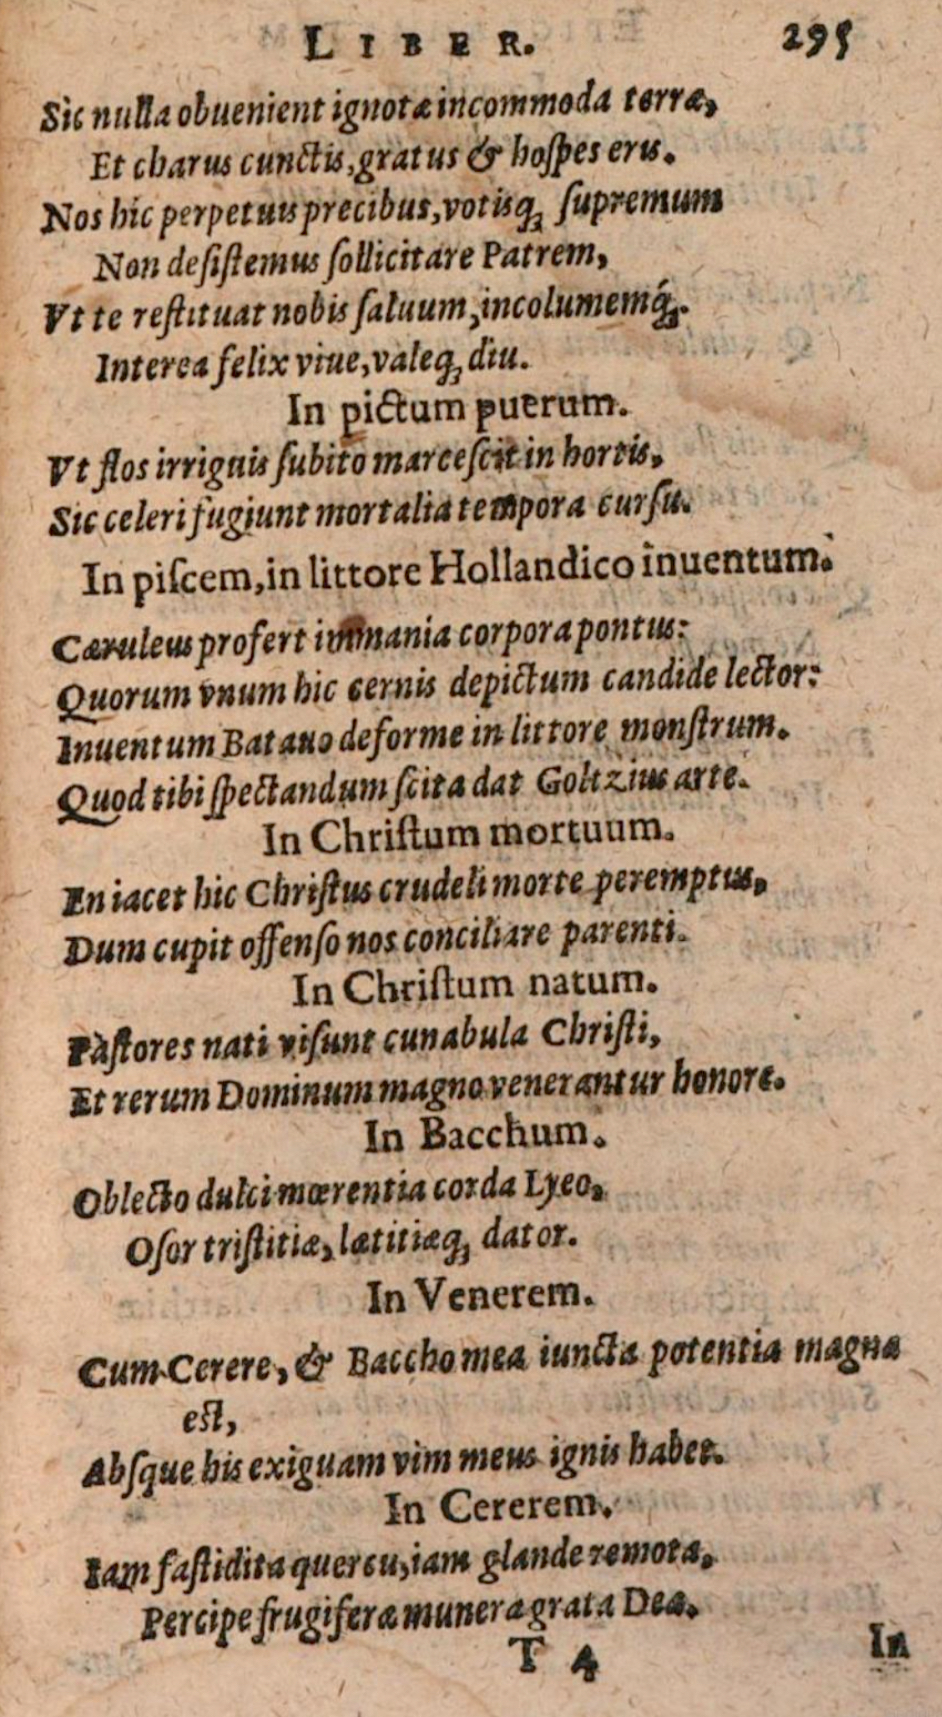 LIBER. 295
Sic nulla obuenient ignotæ incommoda terræ,
Et charus cunctis, gratus & hoſpes eris.
Nos hic perpetuis precibus, votisq; ſupremum
Non deſiſtemus ſollicitare Patrem,
Vt te reſtituat nobis ſaluum, incolumemq́;.
Interea felix viue, valeq; diu.
In pictum puerum.
Vt flos irriguis ſubito marceſcit in hortis,
Sic celeri fugiunt mortalia tempora curſu.
In piſcem, in littore Hollandico inuentum.
Cæruleus profert immania corpora pontus:
Quorum vnum hic cernis depictum candide lector:
Inuentum Batauo deforme in littore monſtrum.
Quod tibi ſpectandum ſcita dat Goltzius arte.
In Chriſtum mortuum.
En iacet hic Chriſtus crudeli morte peremptus,
Dum cupit offenſo nos conciliare parenti.
In Chriſtum natum.
Pàſtores nati viſunt cunabula Chriſti,
Et rerum Dominum magno venerantur honore.
In Bacchum.
Oblecto dulci mœrentia corda Lyeo,
Oſor triſtitiæ, lætitiæq; dator.
In Venerem.
Cum Cerere, & Baccho mea iuncta potentia magna
eſt,
Abſque his exiguam vim meus ignis habet.
In Cererem.
Iam faſtidita quercu, iam glande remota,
Percipe frugiferæ munera grata Deæ.
T 4 In